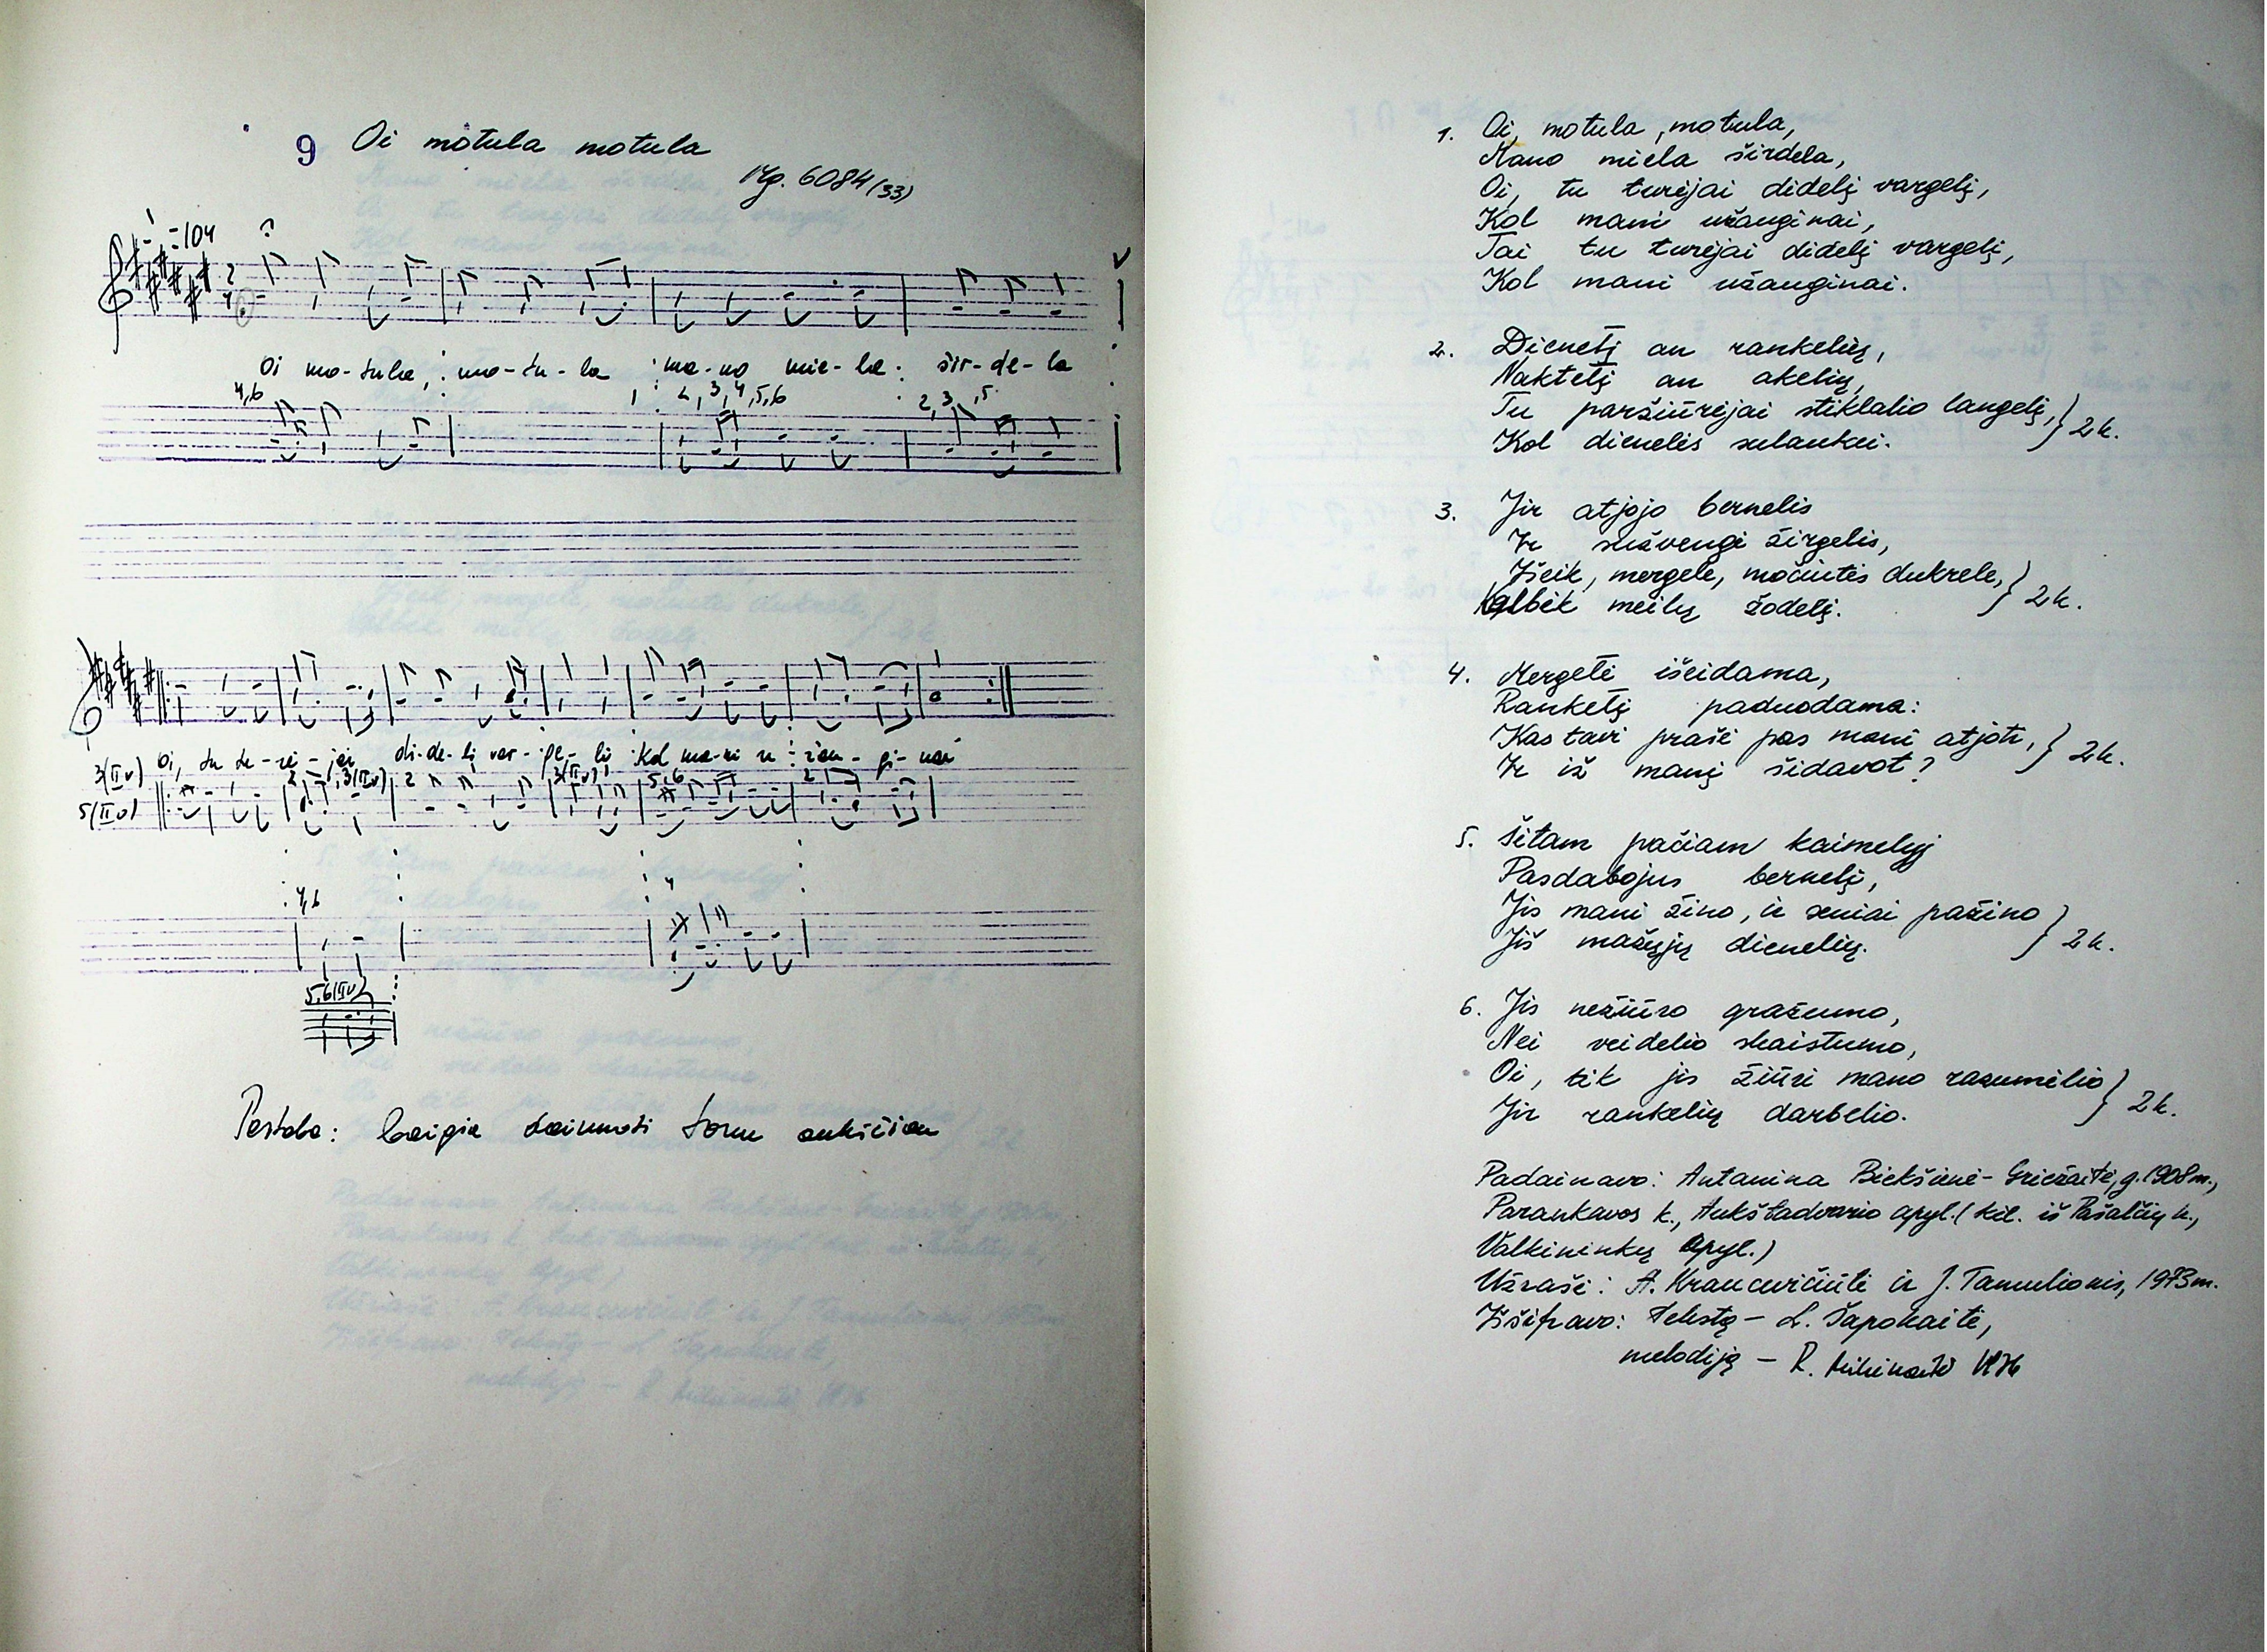 9 Oi motula motula
Mg. 6084 (33)
= 104
2
4
Oi mo-tula, mo-tu-la ma-no mie-la šir-de-la
4,6 1 2,3,4,5,6 2,3,5
Oi, tu tu-rė-jai di-de-lį var-ge-lį Kol ma-ni u-žau-gi-nai
3(II v) 2 3(II v) 2 3(II v) 5,6 2
5(II v)
4,6 4
5,6(II v)
Pastaba: baigia dainuoti tonu aukščiau
1. Oi, motula, motula,
Mano miela širdela,
Oi, tu turėjai didelį vargelį,
Kol mani užauginai,
Tai tu turėjai didelį vargelį,
Kol mani užauginai.
2. Dienelį an rankelių,
Naktelį an akelių,
Tu paržiūrėjai stiklalio langelį, } 2k.
Kol dienelės sulaukei.
3. Jir atjojo bernelis
Ir sužvengi žirgelis,
Išeik, mergele, močiutės dukrele, } 2k.
Kalbėk meilų žodelį.
4. Mergelė išeidama,
Rankelį paduodama:
Kas tavi prašė pas mani atjoti, } 2k.
Ir iž manį šidavot?
5. Šitam pačiam kaimelyj
Pasdabojus bernelį,
Jis mani žino, ir seniai pažino } 2k.
Jiš mažųjų dienelių.
6. Jis nežiūro gražumo,
Nei veidelio skaistumo,
Oi, tik jis žiūri mano razumėlio } 2k.
Jir rankelių darbelio.
Padainavo: Antanina Biekšienė-Griežaitė, g. 1908 m.,
Parankavos k., Aukštadvario apyl. (kil. iš Pašalčių k.,
Valkininkų apyl.)
Užrašė: A. Krancevičiūtė ir J. Tamulionis, 1973 m.
Iššifravo: Tekstą - L. Sapokaitė,
melodiją - R. 1976